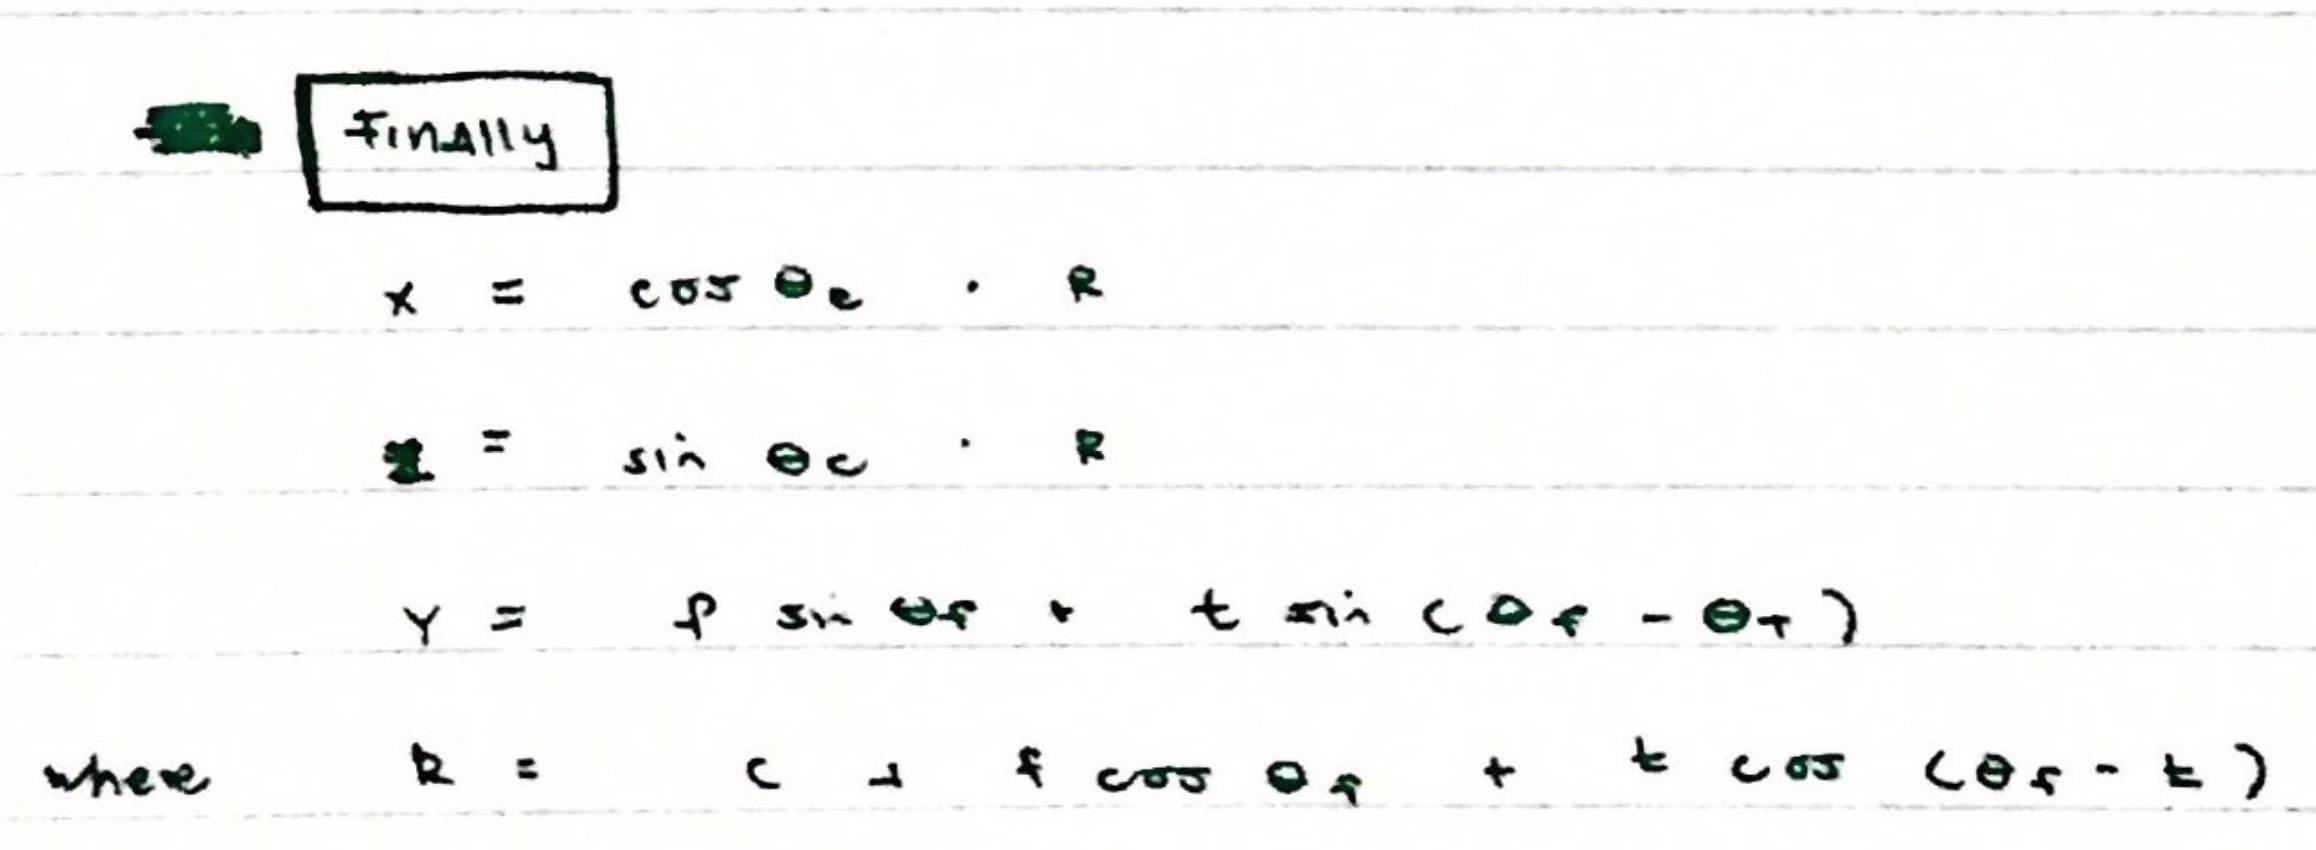 Finally
x = cos θc · R
z = sin θc · R
Y = f sin θf + t sin (θf - θT)
where R = c + f cos θf + t cos (θf - t)